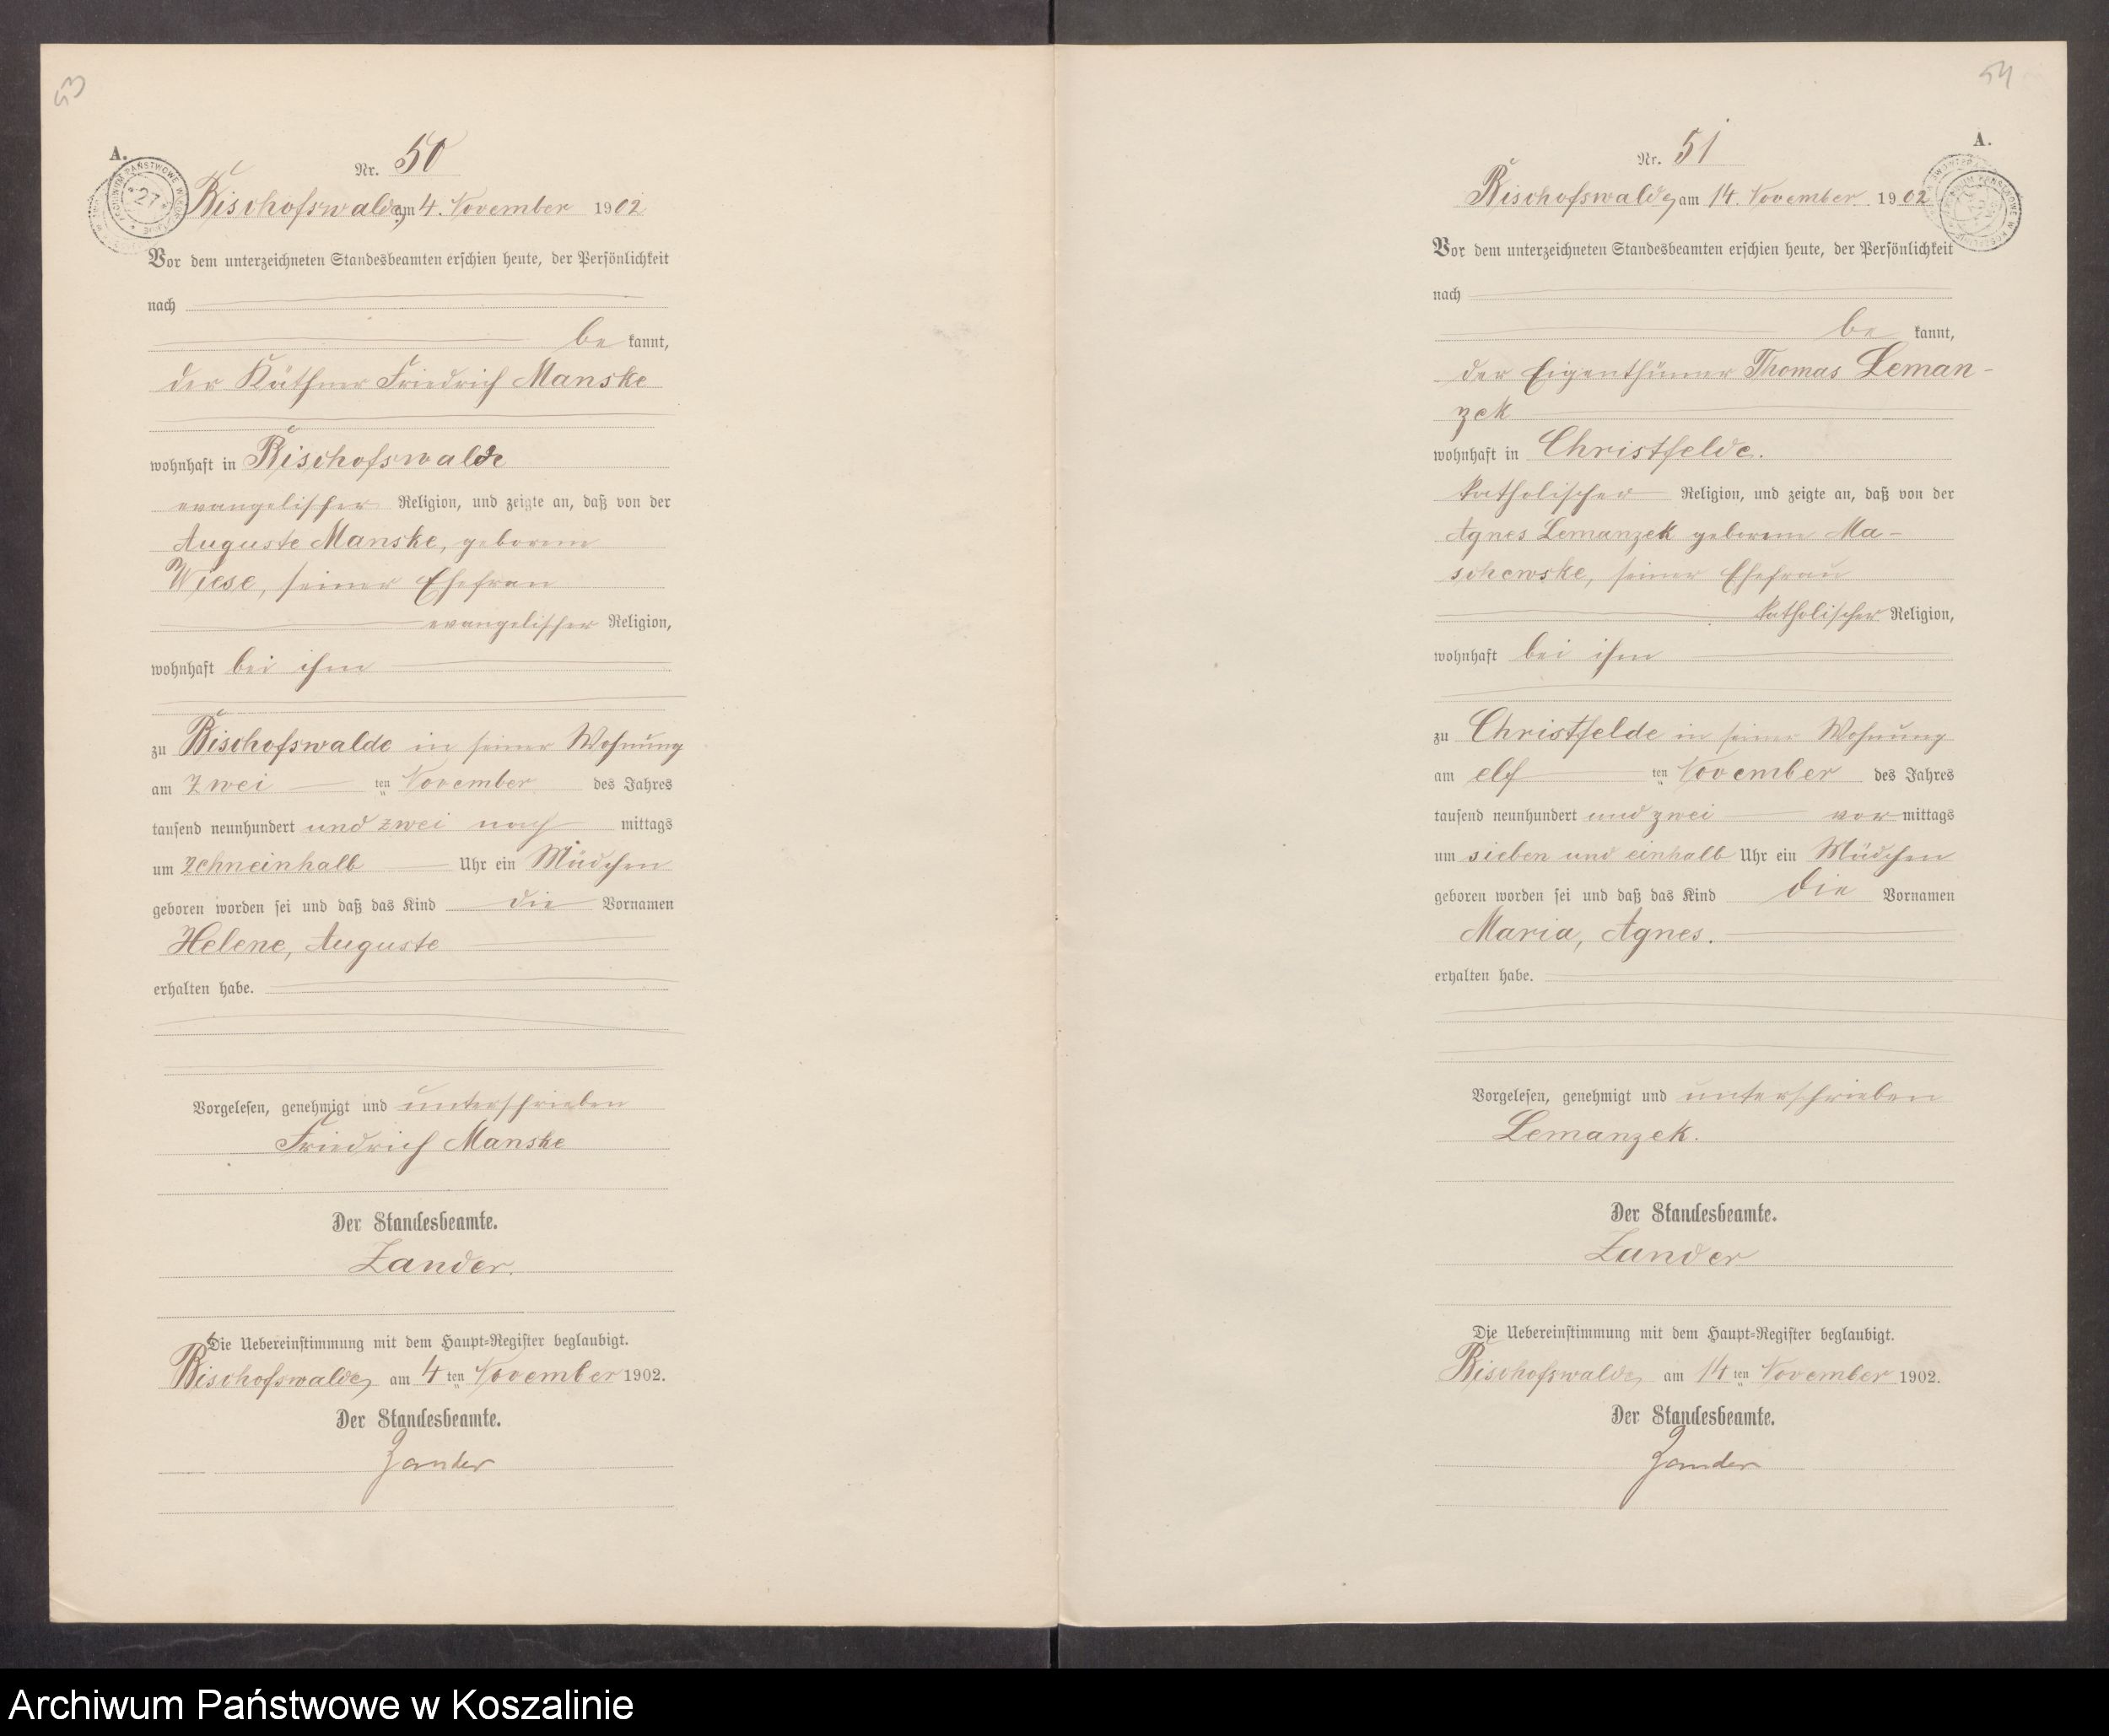 53
A.
Nr. 50
Bischofswalde, am 4. November 1902
Vor dem unterzeichneten Standesbeamten erschien heute, der Persönlichkeit
nach
be kannt,
der Käthner Friedrich Manske
wohnhaft in Bischofswalde
evangelischer Religion, und zeigte an, daß von der
Auguste Manske, geborene
Wiese, seiner Ehefrau
evangelischer Religion,
wohnhaft bei ihm
zu Bischofswalde in seiner Wohnung
am zwei ten November des Jahres
tausend neunhundert und zwei nach mittags
um zehneinhalb Uhr ein Mädchen
geboren worden sei und daß das Kind die Vornamen
Helene, Auguste
erhalten habe.
Vorgelesen, genehmigt und unterschrieben
Friedrich Manske
Der Standesbeamte.
Zander.
Die Uebereinstimmung mit dem Haupt-Register beglaubigt.
Bischofswalde, am 4 ten November 1902.
Der Standesbeamte.
Zander
54
A.
Nr. 51
Bischofswalde, am 14. November 1902
Vor dem unterzeichneten Standesbeamten erschien heute, der Persönlichkeit
nach
be kannt,
der Eigenthümer Thomas Leman-
zek
wohnhaft in Christfelde.
katholischer Religion, und zeigte an, daß von der
Agnes Lemanzek geborene Ma-
schewske, seiner Ehefrau
katholischer Religion,
wohnhaft bei ihm
zu Christfelde in seiner Wohnung
am elf ten November des Jahres
tausend neunhundert und zwei vor mittags
um sieben und einhalb Uhr ein Mädchen
geboren worden sei und daß das Kind die Vornamen
Maria, Agnes.
erhalten habe.
Vorgelesen, genehmigt und unterschrieben
Lemanzek.
Der Standesbeamte.
Zander
Die Uebereinstimmung mit dem Haupt-Register beglaubigt.
Bischofswalde, am 14 ten November 1902.
Der Standesbeamte.
Zander
Archiwum Państwowe w Koszalinie